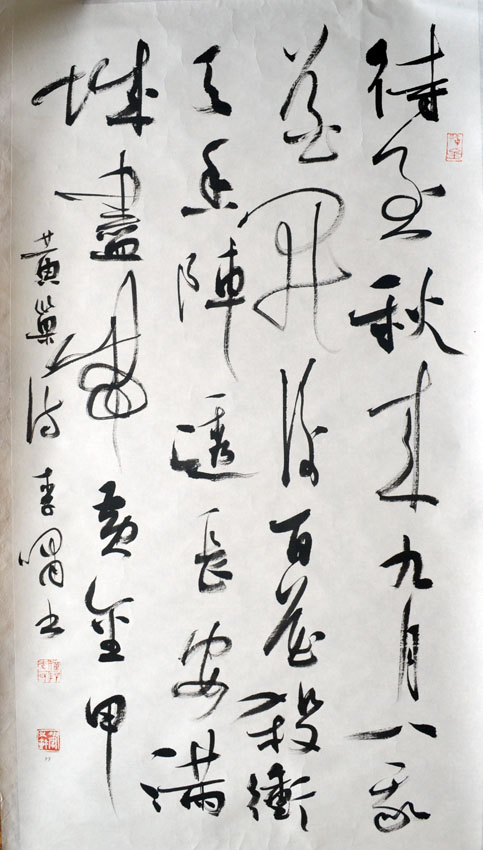 待至秋來九月八我
花開後百花殺衝
天香陣透長安滿
城盡帶黃金甲
黃巢詩 李書